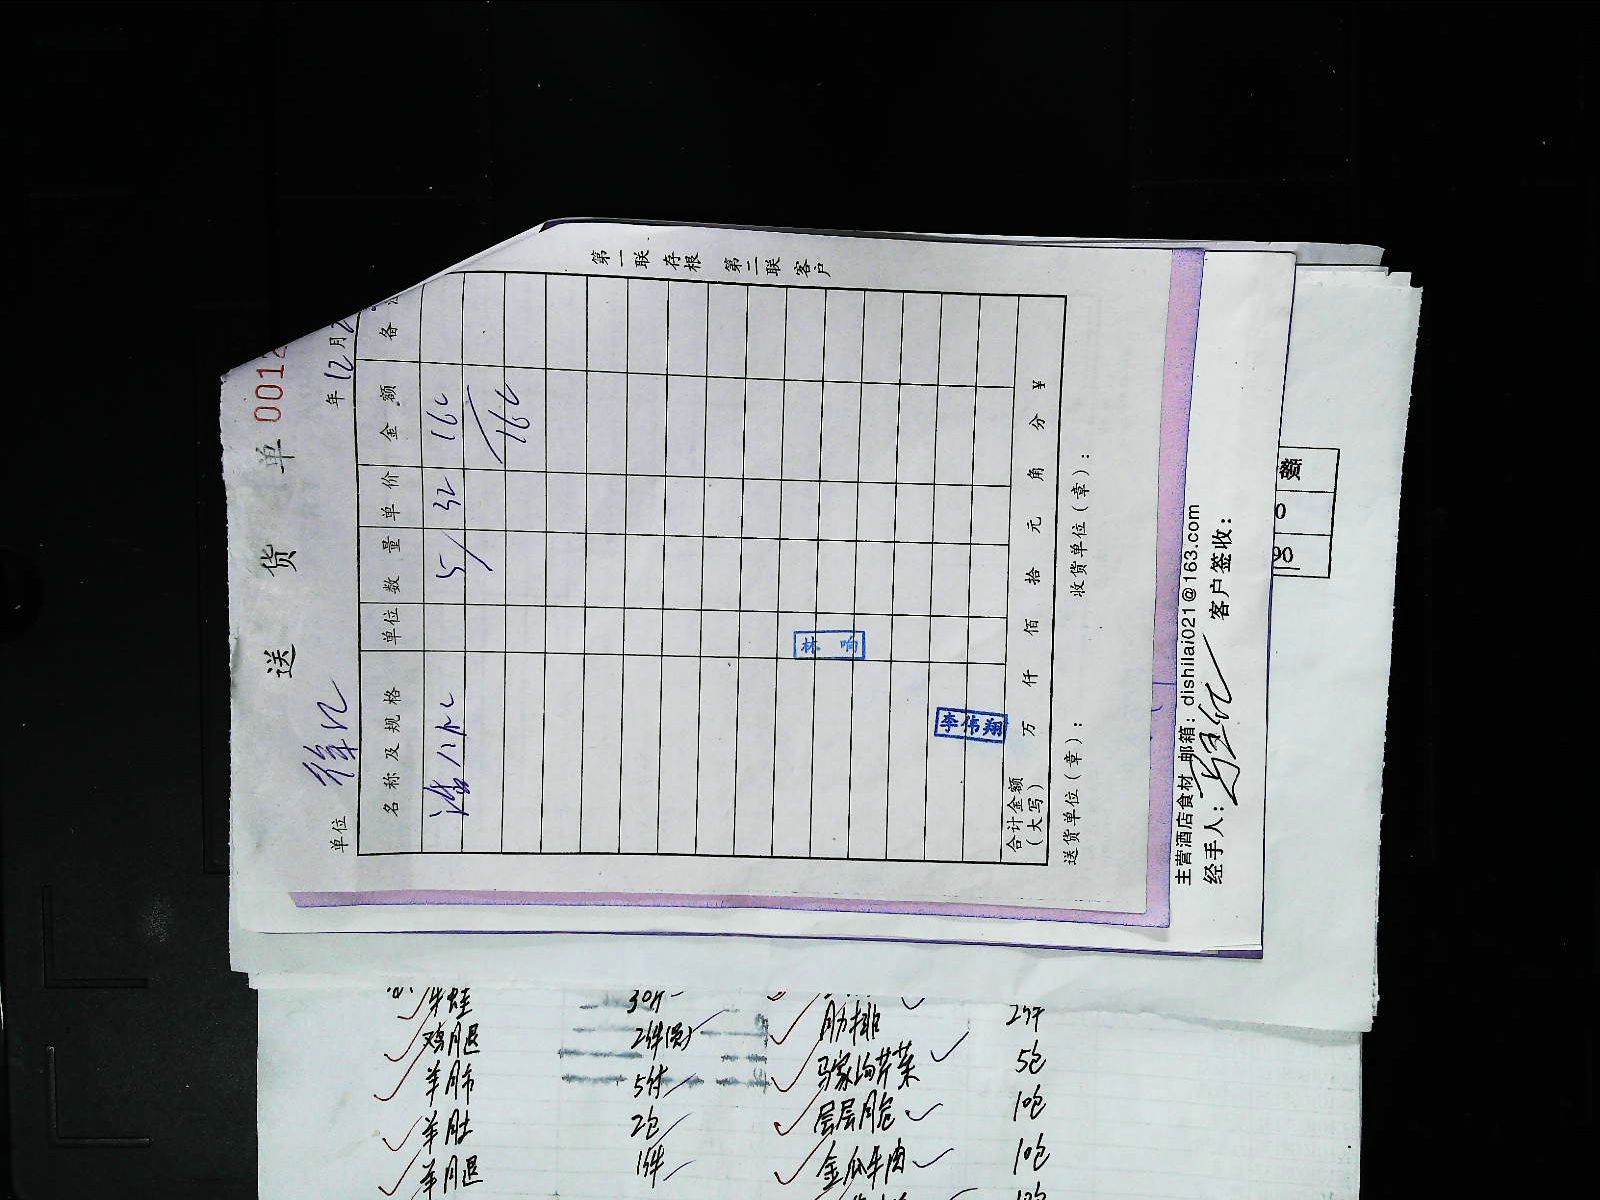 送 货 单 0012
单位 徐记 年 12 月 2
名称及规格 单位 数量 单价 金额 备
5 32 160
160
林响
李伟翔
合计金额（大写） 万 仟 佰 拾 元 角 分 ¥
送货单位（章）： 收货单位（章）：
第一联 存根 第二联 客户
主营酒店食材 邮箱：dishilai021@163.com
经手人： 客户签收：
牛蛙 30斤
鸡腿 2件
羊肺 5付
羊肚 2包
羊腿 1件
肋排 2件
马家沟芹菜 5包
层层脆 10包
金瓜牛肉 10包